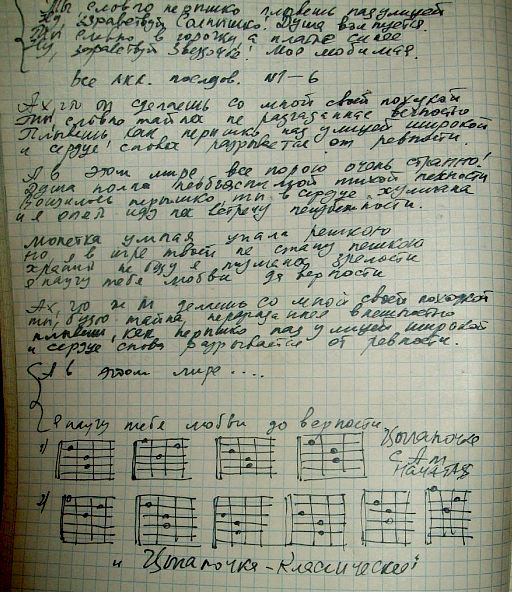 Ты словно перышко плывешь над улицей
Ну, здравствуй Солнышко! Душа волнуется.
Ты словно в горошку а платье синее
Ну, здравствуй Звездочка! Моя любимая.
Все акк. послед. №1-6
Ах, что ты сделаешь со мной своей походкой
Ты словно тайна не разгаданная верность
Плывешь как перышко над улицей широкой
и сердце снова разрывается от ревности.
А в этом мире, все порою очень странно!
Душа полна необъяснимой тихой нежности
Вонзилось перышко ты в сердце, хулигана
и я опять иду на встречу неизбежности.
Монетка умная упала решкою
Но я в игре твоей не стану пешкою
я научу тебя любви до верности
Ах, что ж ты делаешь со мной своей походкой
ты, будто тайна неразгаданная внешностью
плывешь, как перышко над улицей широкой
и сердце снова разрывается от ревности.
А в этом мире ....
Я научу тебя любви до верности.
1)
Цыпочка
с Am
начатая
2)
и Цыпочка - Классическая